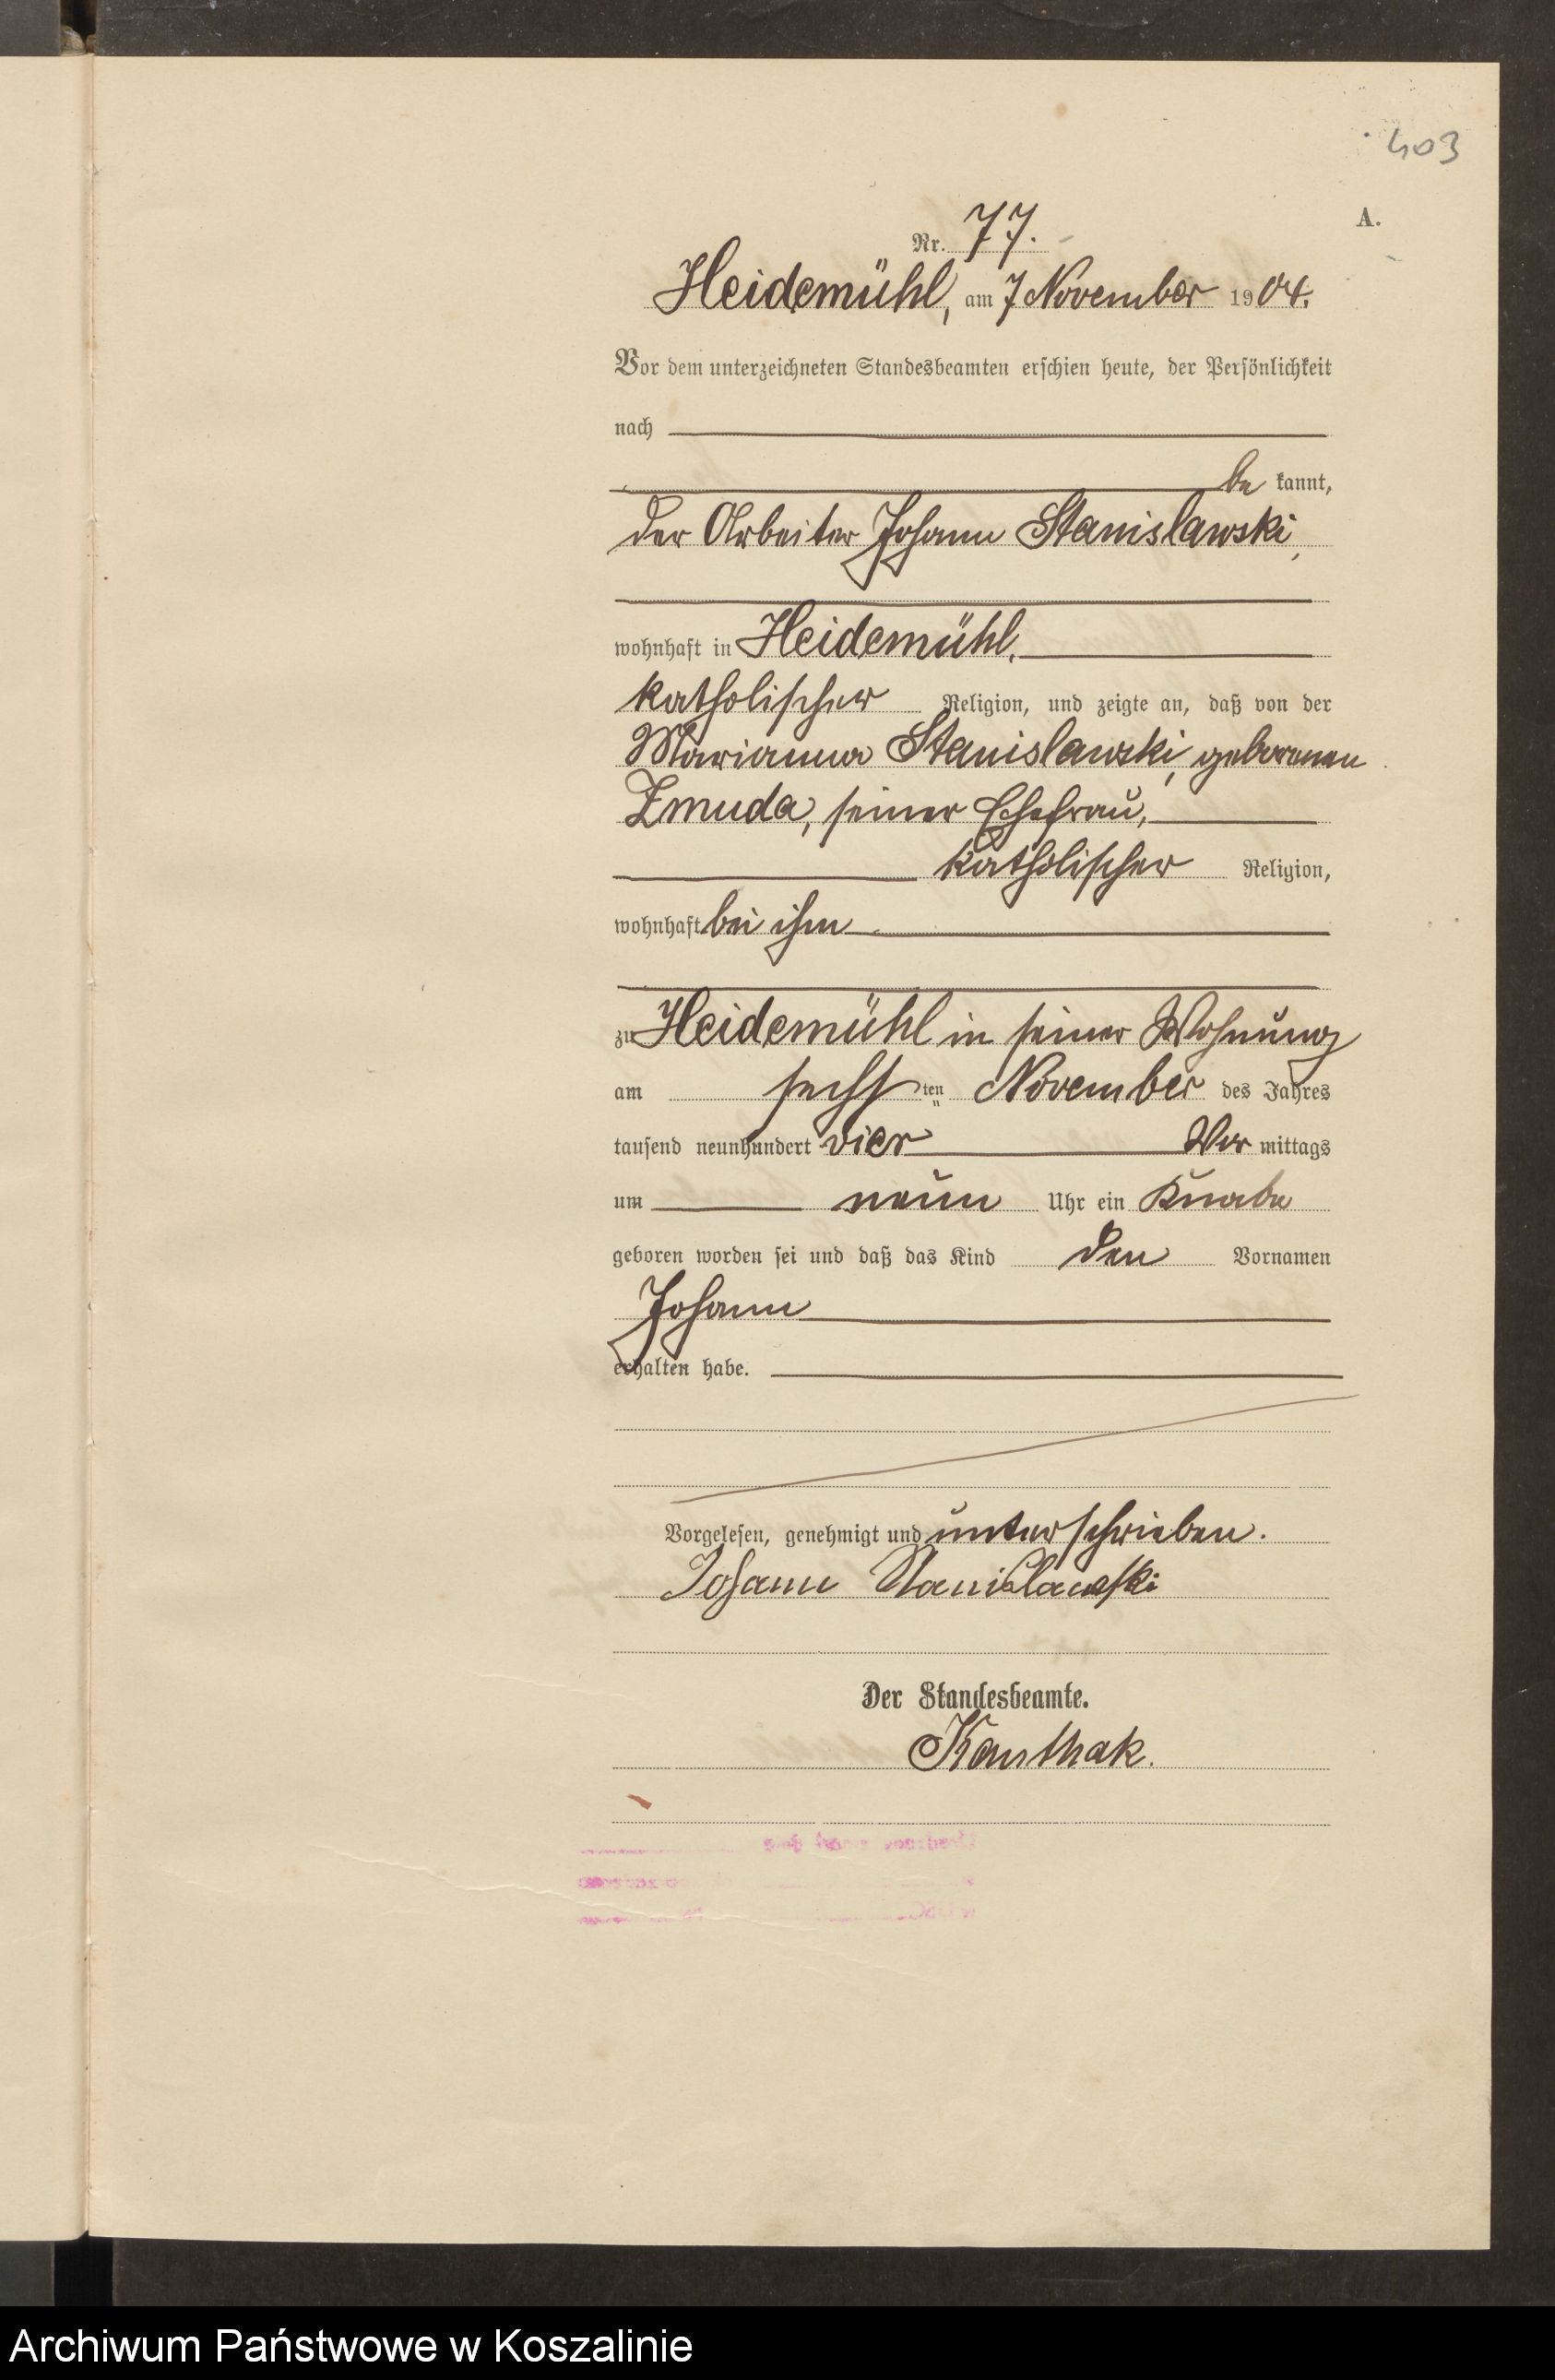 403
A.
Nr. 77.
Heidemühl, am 7 November 1904.
Vor dem unterzeichneten Standesbeamten erschien heute, der Persönlichkeit
nach
be kannt,
der Arbeiter Johann Stanislawski,
wohnhaft in Heidemühl,
katholischer Religion, und zeigte an, daß von der
Marianna Stanislawski, geborenen
Zmuda, seiner Ehefrau,
katholischer Religion,
wohnhaft bei ihm
zu Heidemühl in seiner Wohnung
am sechs ten November des Jahres
tausend neunhundert vier Vor mittags
um neun Uhr ein Knabe
geboren worden sei und daß das Kind den Vornamen
Johann
erhalten habe.
Vorgelesen, genehmigt und unterschrieben.
Johann Stanislawski
Der Standesbeamte.
Archiwum Państwowe w Koszalinie